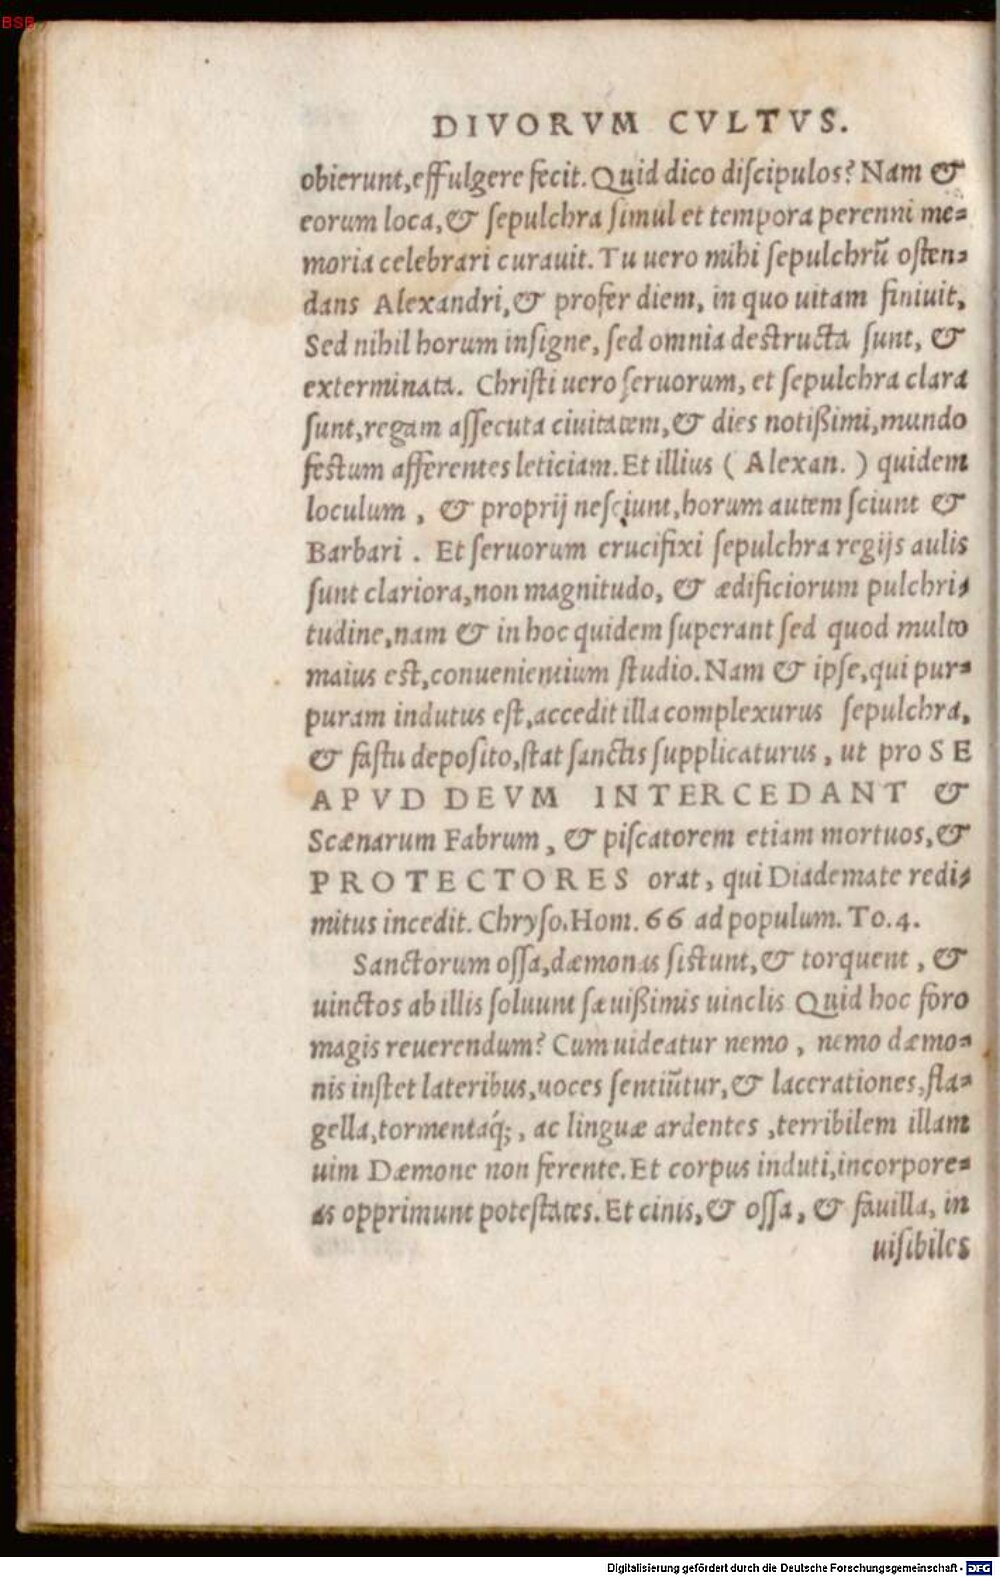 BSB
DIVORVM CVLTVS.
obierunt, effulgere fecit. Quid dico discipulos? Nam &
eorum loca, & sepulchra simul et tempora perenni me-
moria celebrari curauit. Tu uero mihi sepulchrũ osten-
dans Alexandri, & profer diem, in quo uitam finiuit,
Sed nihil horum insigne, sed omnia destructa sunt, &
exterminata. Christi uero seruorum, et sepulchra clara
sunt, regam assecuta ciuitatem, & dies notißimi, mundo
festum afferentes leticiam. Et illius ( Alexan. ) quidem
loculum, & proprij nesciunt, horum autem sciunt &
Barbari. Et seruorum crucifixi sepulchra regijs aulis
sunt clariora, non magnitudo, & ædificiorum pulchri-
tudine, nam & in hoc quidem superant sed quod multo
maius est, conuenientium studio. Nam & ipse, qui pur-
puram indutus est, accedit illa complexurus sepulchra,
& fastu deposito, stat sanctis supplicaturus, ut pro SE
APVD DEVM INTERCEDANT &
Scænarum Fabrum, & piscatorem etiam mortuos, &
PROTECTORES orat, qui Diademate redi-
mitus incedit. Chryso. Hom. 66 ad populum. To. 4.
Sanctorum ossa, dæmonas sistunt, & torquent, &
uinctos ab illis soluunt sæuißimis uinclis Quid hoc foro
magis reuerendum? Cum uideatur nemo, nemo dæmo-
nis instet lateribus, uoces sentiũtur, & lacerationes, fla-
gella, tormentáq;, ac linguæ ardentes, terribilem illam
uim Dæmone non ferente. Et corpus induti, incorpore-
as opprimunt potestates. Et cinis, & ossa, & fauilla, in
uisibiles
Digitalisierung gefördert durch die Deutsche Forschungsgemeinschaft - DFG